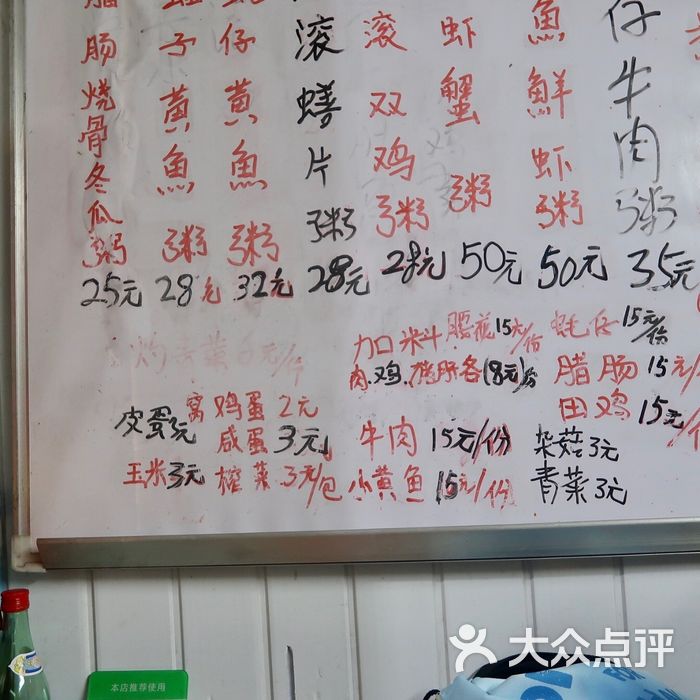 腊肠烧骨冬瓜粥 25元
子黄魚粥 28元
仔黄魚粥 32元
滚鳝片粥 28元
滚双鸡粥 28元
虾蟹粥 50元
魚鲜虾粥 50元
仔牛肉粥 35元
灼 菜 6元/份
加口米斗
腰花15元/份
蚝仔15元/份
肉.鸡. 各(8元)份
腊肠15元/
田鸡15元/份
皮蛋 元
窝鸡蛋2元
咸蛋3元
牛肉15元/份
杂菇3元
玉米3元
榨菜3元/包
小黄魚15元/份
青菜3元
本店推荐使用
大众点评